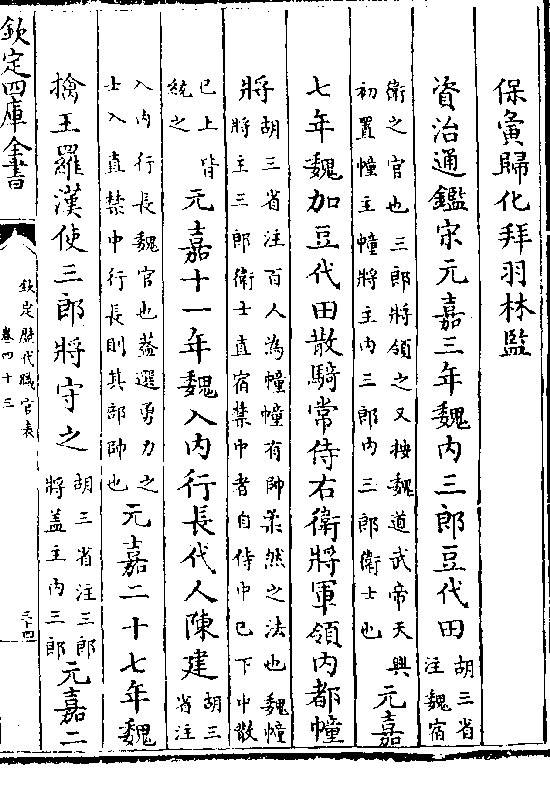 保夤歸化拜羽林監
資治通鑑宋元嘉三年魏内三郎豆代田胡三省注魏宿
衛之官也三郎將領之又按魏道武帝天興初置幢主幢將主内三郎内三郎衛士也元嘉
七年魏加豆代田散騎常侍右衛將軍領内都幢
將胡三省注百人為幢幢有帥柔然之法也魏幢將主三郎衛士直宿禁中者自侍中已下中散
已上皆統之元嘉十一年魏入内行長代人陳建胡三省注
入内行長魏官也蓋選勇力之士入直禁中行長則其部帥也元嘉二十七年魏
擒王羅漢使三郎將守之胡三省注三郎將蓋主内三郎元嘉二
欽定四庫全書
欽定歷代職官表
卷四十三
三十四